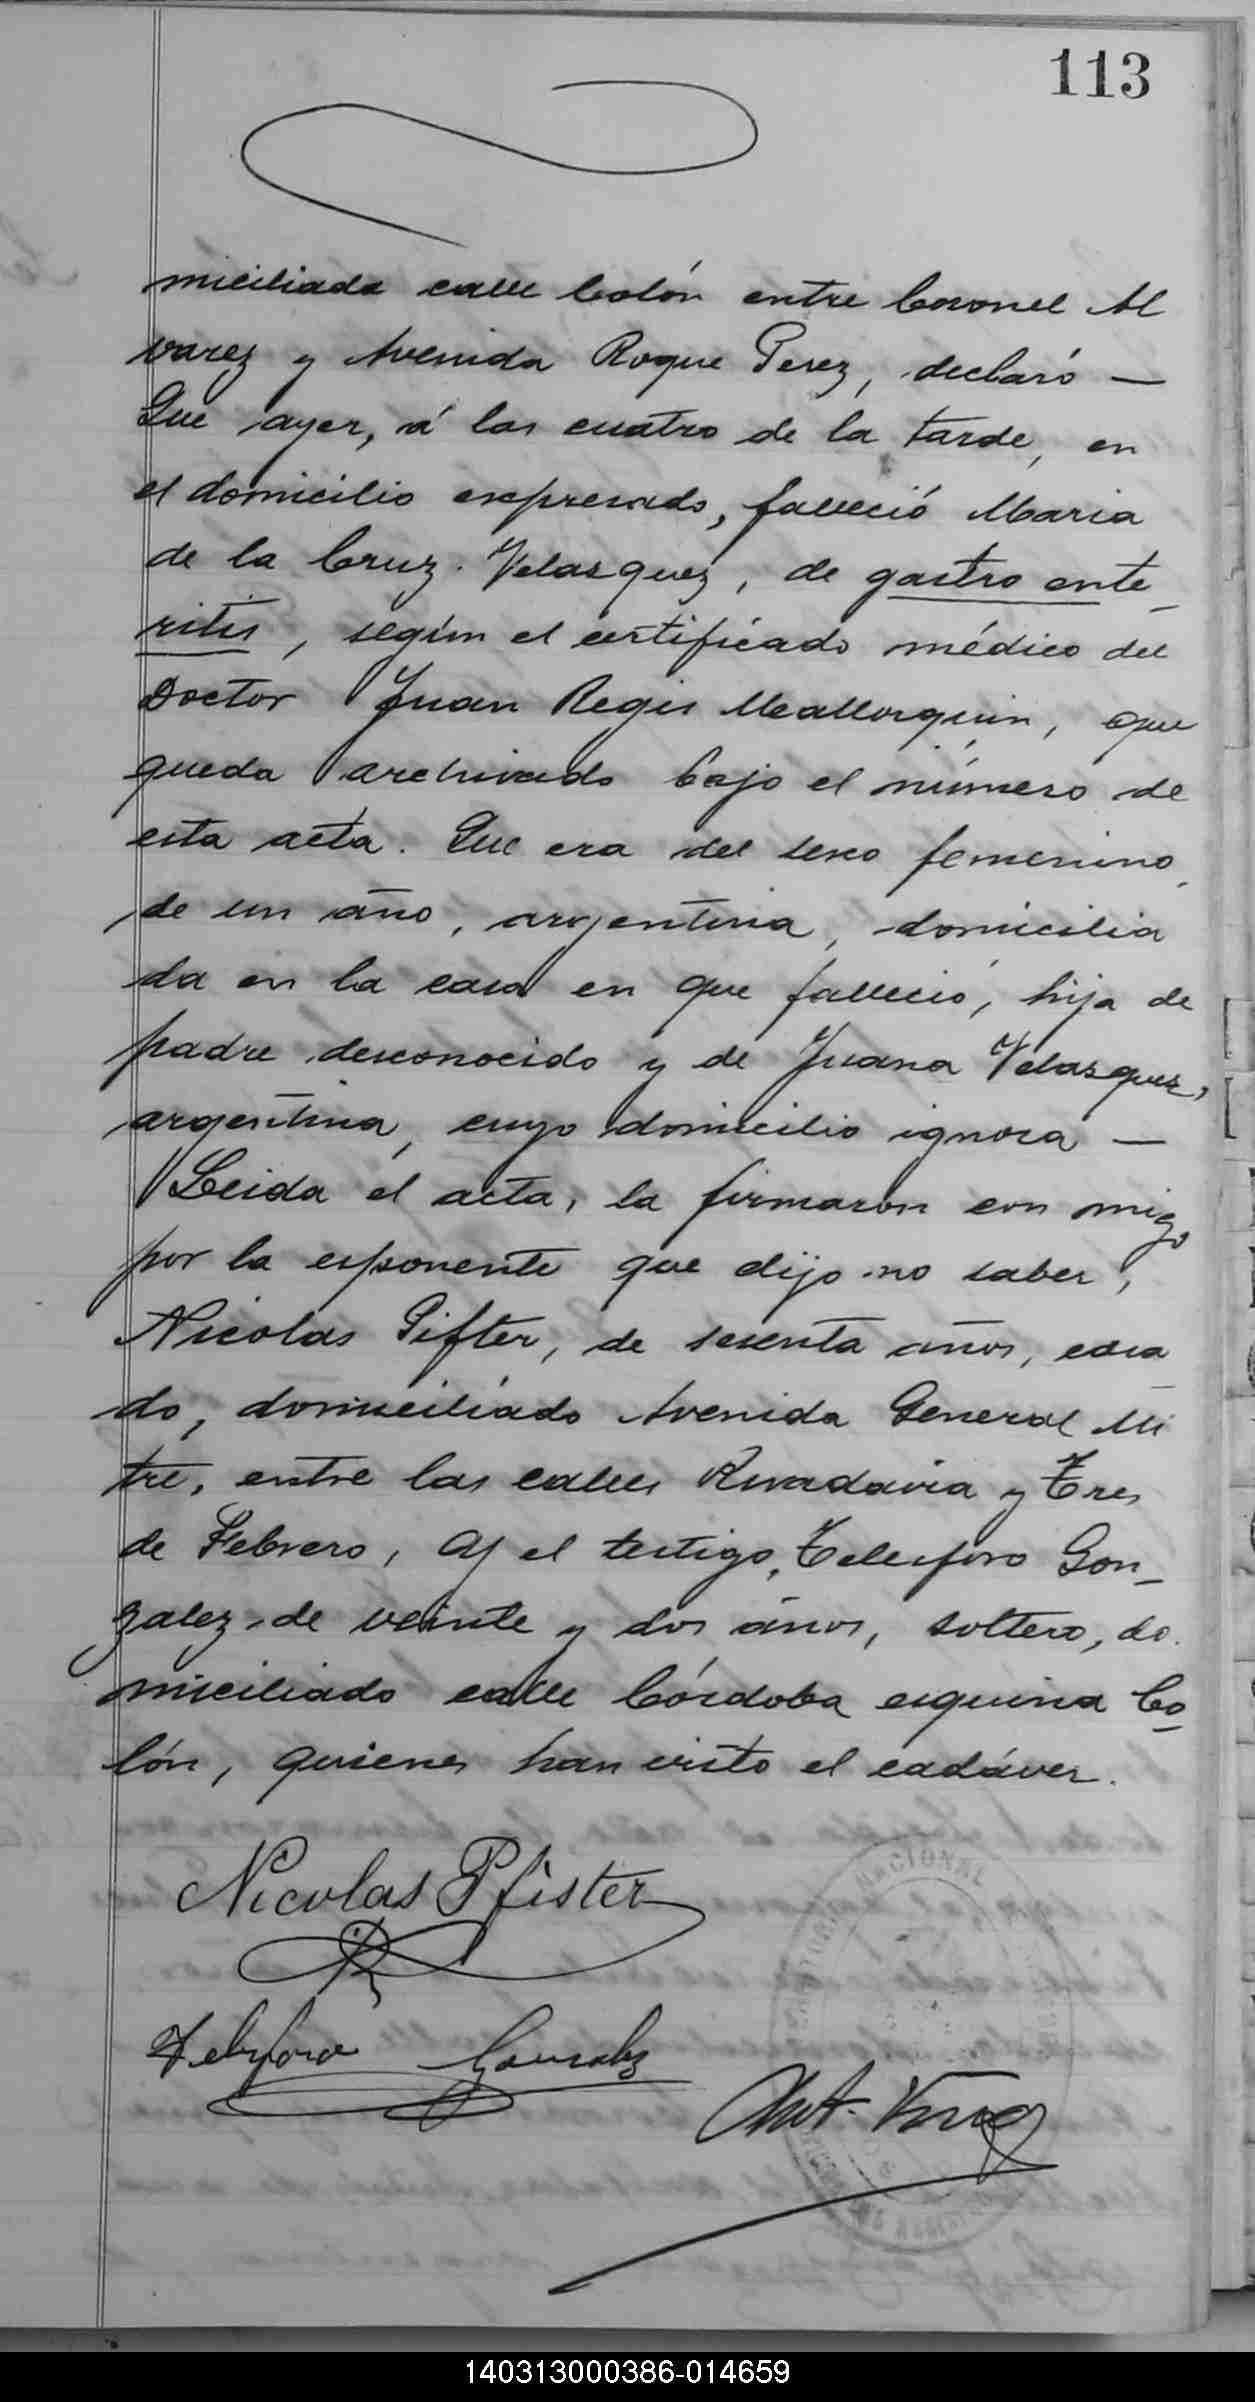 113
miciliada calle Colón entre Coronel Al
varez y Avenida Roque Perez, declaró —
Que ayer, á las cuatro de la tarde, en
el domicilio expresado, falleció Maria
de la Cruz Velasquez, de gastro ente_
ritis, según el certificado médico del
Doctor Juan Regis Meallorquin, que
queda archivado bajo el número de
esta acta. Que era del sexo femenino,
de un año, argentina, domicilia
da en la casa en que falleció, hija de
padre desconocido y de Juana Velasquez,
argentina, cuyo domicilio ignora —
Leida el acta, la firmaron con migo
por la esponente que dijo no saber,
Nicolas Pifter, de sesenta años, casa_
do, domiciliado Avenida General Mi
tre, entre las calles Rivadavia y Tres
de Febrero, y el testigo, Telesforo Gon_
zalez de veinte y dos años, soltero, do.
miciliado calle Córdoba esquina Co_
lón, quienes han visto el cadáver.
Nicolas Pfister
Telesforo Gonzalez
Ant.
NACIONAL
140313000386-014659